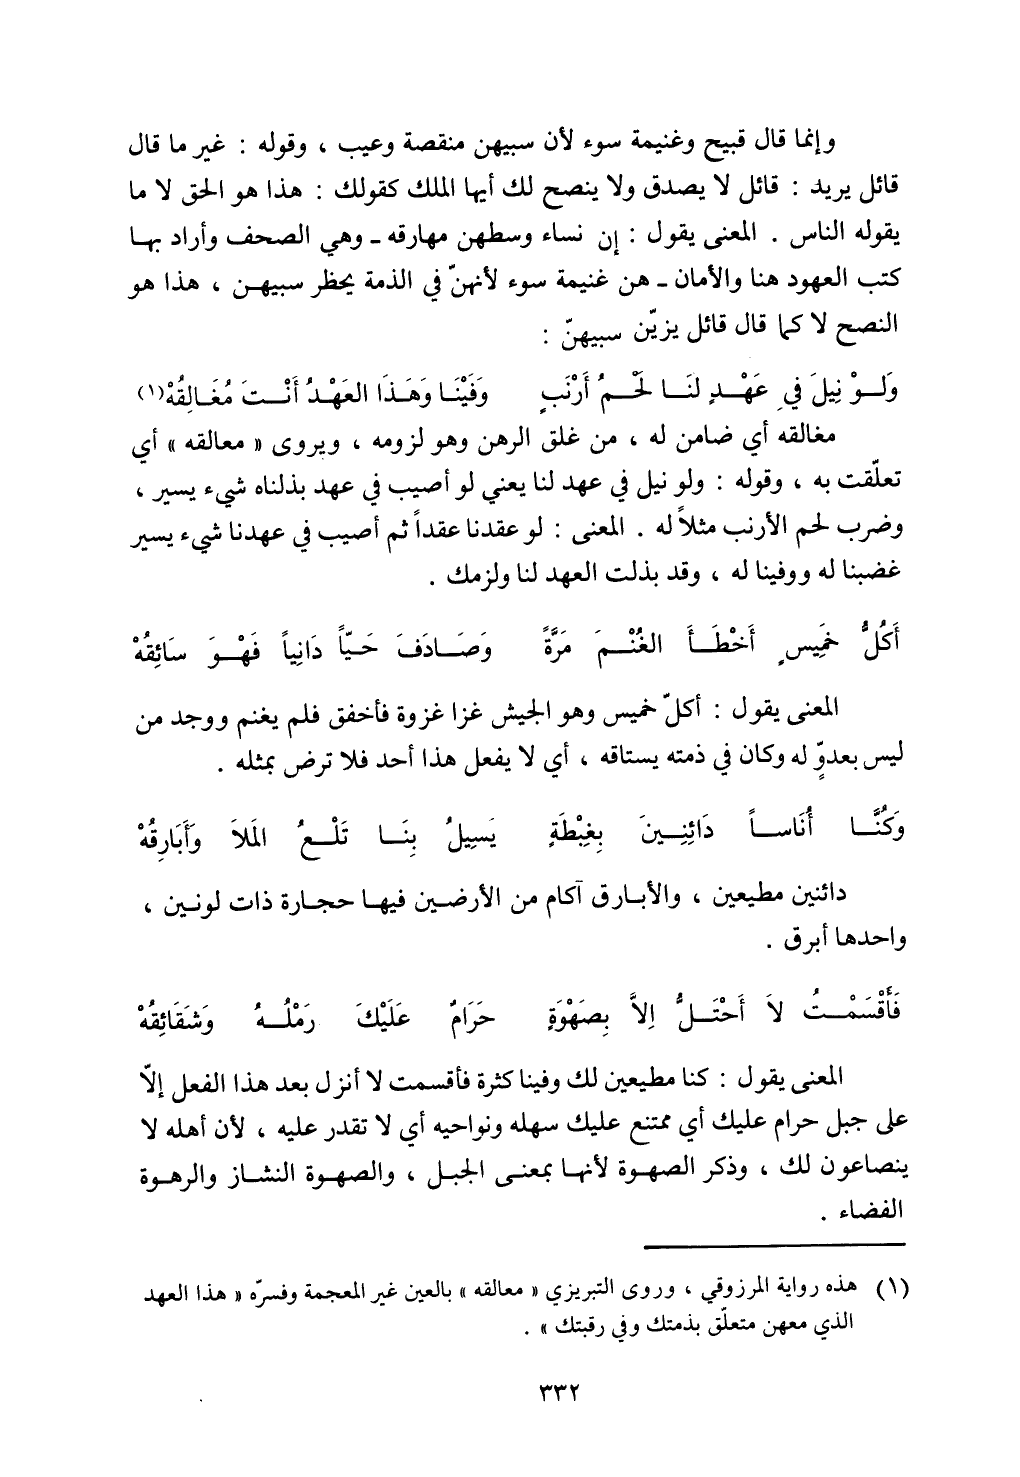 وإنما قال قبيح وغنيمة سوء لأن سبيهن منقصة وعيب ، وقوله : غير ما قال
قائل يريد : قائل لا يصدق ولا ينصح لك أيها الملك كقولك : هذا هو الحق لا ما
يقوله الناس . المعنى يقول : إن نساء وسطهن مهارقه ـ وهي الصحف وأراد بهـا
كتب العهود هنا والأمان ـ هن غنيمة سوء لأنهنّ في الذمة يحظر سبيهـن ، هذا هو
النصح لا كما قال قائل يزيّن سبيهنّ :
وَلَـوْ نِيلَ في عَهْـدٍ لنَـا لَحْـمُ أَرْنَبٍ وَفَيْنَا وَهَذَا العَهْدُ أَنْـتَ مُغَـالِقُهْ(١)
مغالقه أي ضامن له ، من غلق الرهن وهو لزومه ، ويروى « معالقه » أي
تعلّقت به ، وقوله : ولو نيل في عهد لنا يعني لو أصيب في عهد بذلناه شيء يسير ،
وضرب لحم الأرنب مثلاً له . المعنى : لو عقدنا عقداً ثم أصيب في عهدنا شيء يسير
غضبنا له ووفينا له ، وقد بذلت العهد لنا ولزمك .
أَكُلُّ خَمِيسٍ أَخْطَـأَ الغُنْـمَ مَرَّةً وَصَـادَفَ حَيّاً دَانِياً فَهْـوَ سَائِقُهْ
المعنى يقول : أكلّ خميس وهو الجيش غزا غزوة فأخفق فلم يغنم ووجد من
ليس بعدوٍّ له وكان في ذمته يستاقه ، أي لا يفعل هذا أحد فلا ترض بمثله .
وَكُنَّـا أُنَاسـاً دَائِنِـينَ بِغِبْطَةٍ يَسِيلُ بِنَـا تَلْـعُ المَلاَ وَأَبَارِقُهْ
دائنين مطيعين ، والأبـارق آكام من الأرضـين فيهـا حجـارة ذات لونـين ،
واحدها أبرق .
فَأَقْسَمْـتُ لاَ أَحْتَـلُّ إلاَّ بِصَهْوَةٍ حَرَامٌ عَلَيْكَ رَمْلُـهُ وَشَقَائِقُهْ
المعنى يقول : كنا مطيعين لك وفينا كثرة فأقسمت لا أنزل بعد هذا الفعل إلاّ
على جبل حرام عليك أي ممتنع عليك سهله ونواحيه أي لا تقدر عليه ، لأن أهله لا
ينصاعون لك ، وذكر الصهـوة لأنهـا بمعنـى الجبـل ، والصهـوة النشـاز والرهـوة
الفضاء .
(١) هذه رواية المرزوقي ، وروى التبريزي « معالقه » بالعين غير المعجمة وفسرّه « هذا العهد
الذي معهن متعلّق بذمتك وفي رقبتك » .
٣٣٢